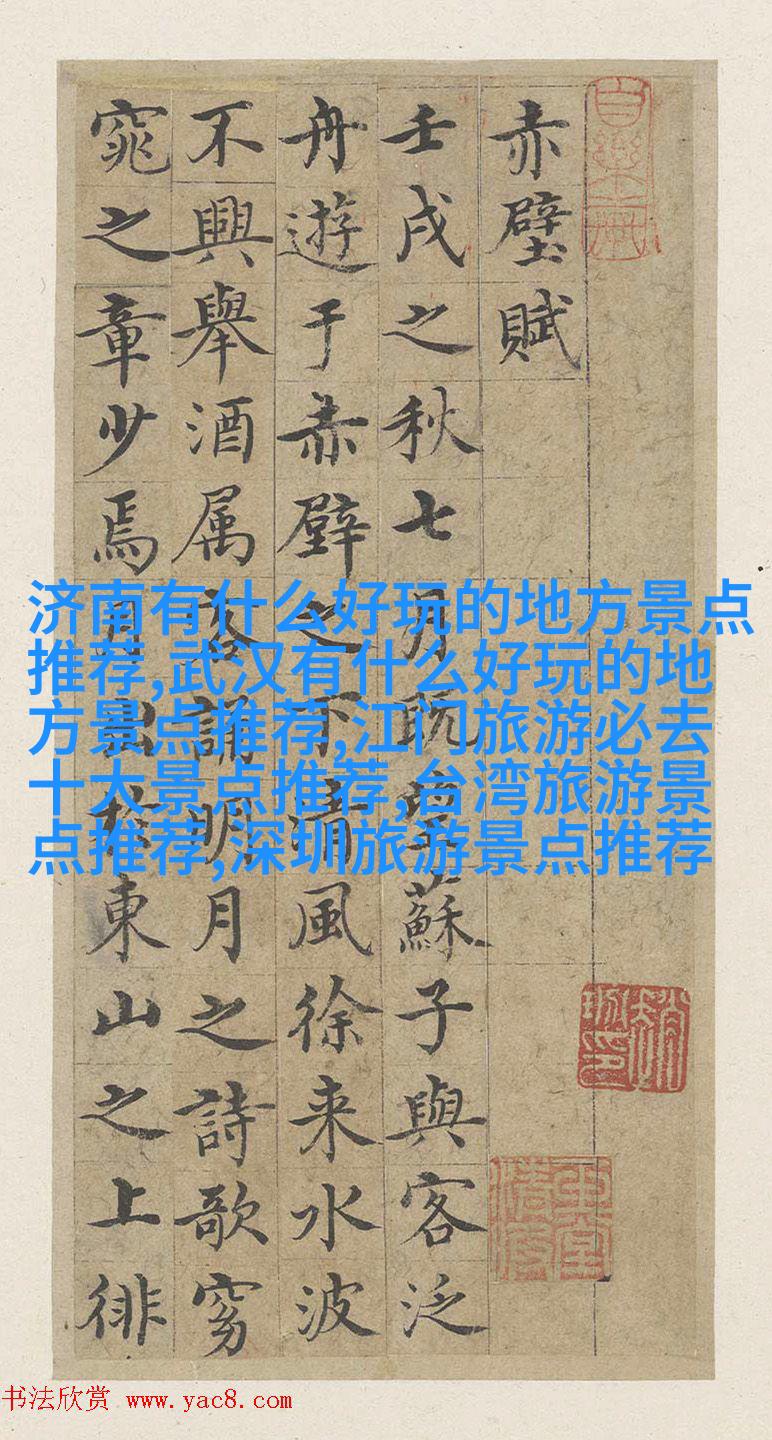 赤壁賦
壬戌之秋七月既望蘇子與客泛
舟遊于赤壁之下清風徐来水波
不興舉酒属客誦明月之詩歌窈
窕之章少焉月出於東山之上徘
济南有什么好玩的地方景点
推荐,武汉有什么好玩的地
方景点推荐,江门旅游必去
十大景点推荐,台湾旅游景
点推荐,深圳旅游景点推荐
书法欣赏 www.yac8.com